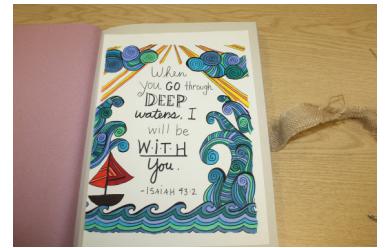 When
you GO through
DEEP
waters, I
will be
W·I·T·H
you.
-ISAIAH 43·2